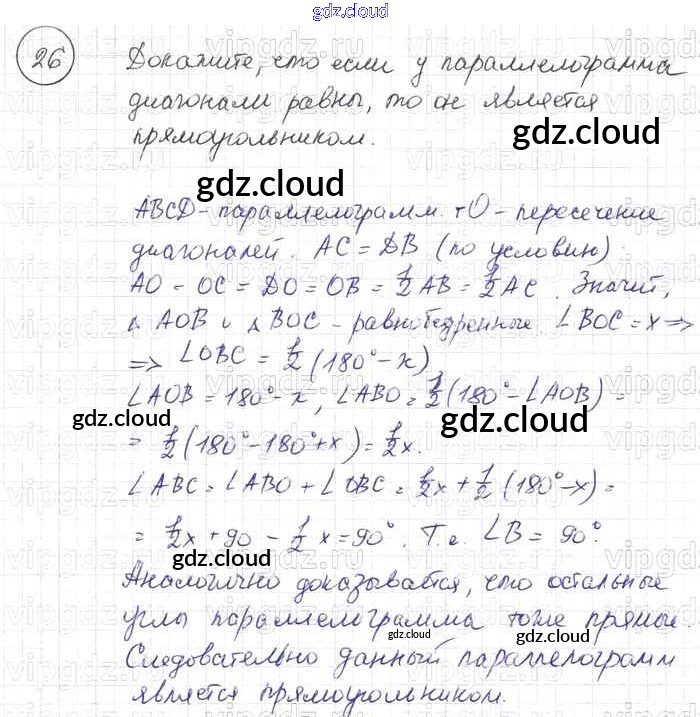 gdz.cloud
26 Докажите, что если у параллелограмма
диагонали равны, то он является
прямоугольником.
gdz.cloud
gdz.cloud
ABCD - параллелограмм. т О - пересечение
диагоналей. AC = DB (по условию)
AO = OC = DO = OB = 1/2 AB = 1/2 AC. Значит,
△ AOB и △ BOC - равнобедренные. ∠BOC = x ⇒
⇒ ∠OBC = 1/2 (180° - x)
∠AOB = 180° - x, ∠ABO = 1/2 (180° - ∠AOB) =
gdz.cloud
gdz.cloud
= 1/2 (180° - 180° + x) = 1/2 x.
∠ABC = ∠ABO + ∠OBC = 1/2 x + 1/2 (180° - x) =
= 1/2 x + 90 - 1/2 x = 90°. Т.е. ∠B = 90°.
gdz.cloud
gdz.cloud
Аналогично доказывается, что остальные
углы параллелограмма тоже прямые.
gdz.cloud
gdz.cloud
Следовательно данный параллелограмм
является прямоугольником.
gdz.cloud